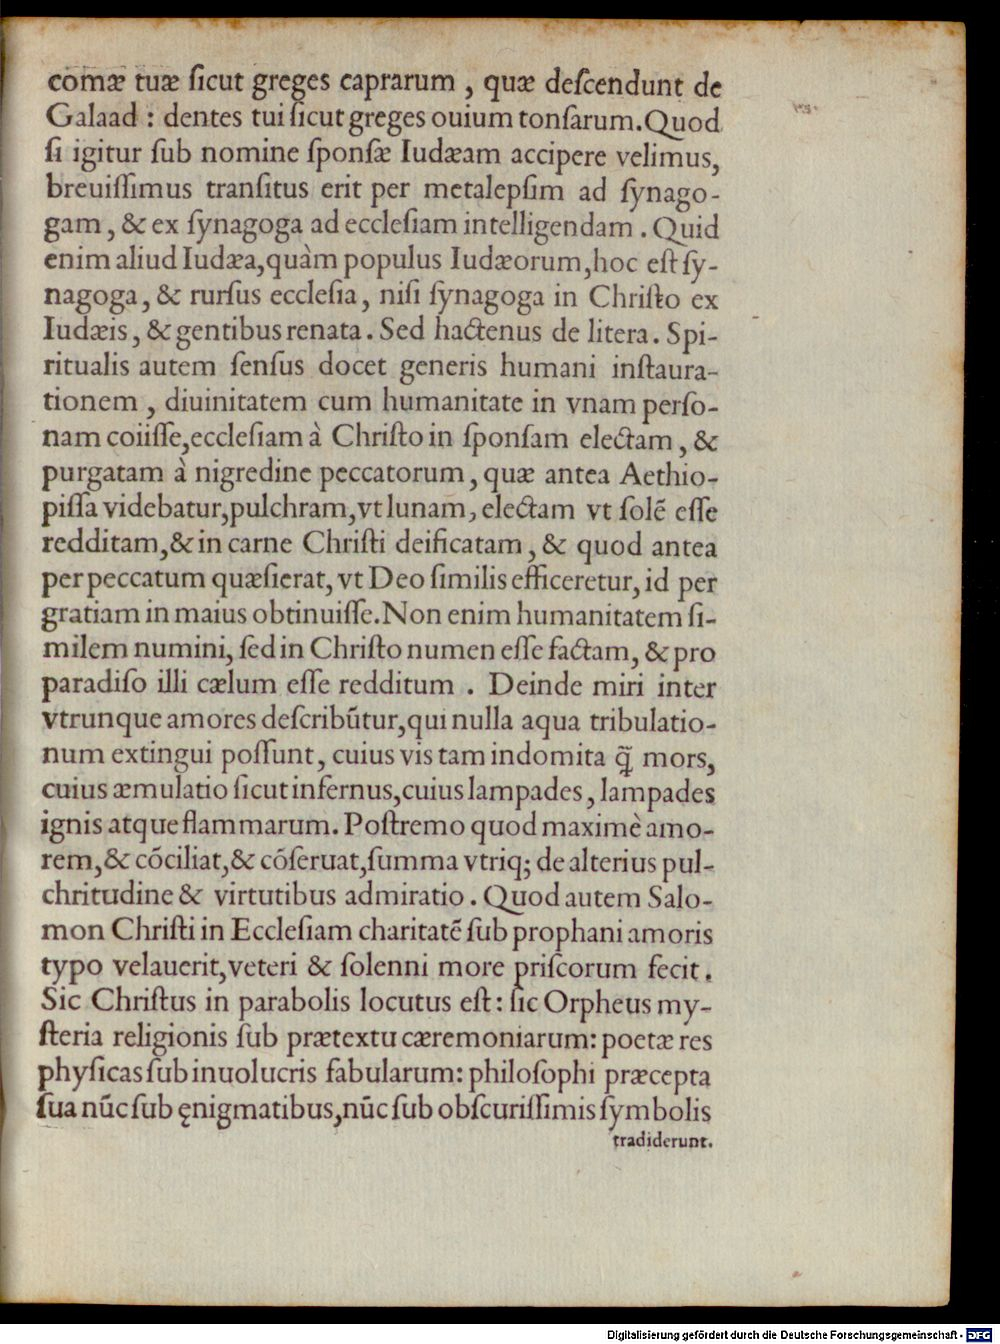 comæ tuæ ſicut greges caprarum , quæ deſcendunt de
Galaad : dentes tui ſicut greges ouium tonſarum. Quod
ſi igitur ſub nomine ſponſæ Iudæam accipere velimus,
breuiſſimus tranſitus erit per metalepſim ad ſynago-
gam , & ex ſynagoga ad eccleſiam intelligendam . Quid
enim aliud Iudæa, quàm populus Iudæorum, hoc eſt ſy-
nagoga , & rurſus eccleſia , niſi ſynagoga in Chriſto ex
Iudæis , & gentibus renata . Sed hactenus de litera . Spi-
ritualis autem ſenſus docet generis humani inſtaura-
tionem , diuinitatem cum humanitate in vnam perſo-
nam coiiſſe, eccleſiam à Chriſto in ſponſam electam , &
purgatam à nigredine peccatorum , quæ antea Aethio-
piſſa videbatur, pulchram, vt lunam, electam vt ſolē eſſe
redditam, & in carne Chriſti deificatam , & quod antea
per peccatum quæſierat, vt Deo ſimilis efficeretur, id per
gratiam in maius obtinuiſſe. Non enim humanitatem ſi-
milem numini, ſed in Chriſto numen eſſe factam, & pro
paradiſo illi cælum eſſe redditum . Deinde miri inter
vtrunque amores deſcribūtur, qui nulla aqua tribulatio-
num extingui poſſunt , cuius vis tam indomita q̃ mors,
cuius æmulatio ſicut infernus, cuius lampades , lampades
ignis atque flammarum. Poſtremo quod maximè amo-
rem, & cōciliat, & cōſeruat, ſumma vtriq; de alterius pul-
chritudine & virtutibus admiratio . Quod autem Salo-
mon Chriſti in Eccleſiam charitatē ſub prophani amoris
typo velauerit, veteri & ſolenni more priſcorum fecit .
Sic Chriſtus in parabolis locutus eſt : ſic Orpheus my-
ſteria religionis ſub prætextu cæremoniarum: poetæ res
phyſicas ſub inuolucris fabularum: philoſophi præcepta
ſua nūc ſub ęnigmatibus, nūc ſub obſcuriſſimis ſymbolis
tradiderunt.
Digitalisierung gefördert durch die Deutsche Forschungsgemeinschaft - DFG